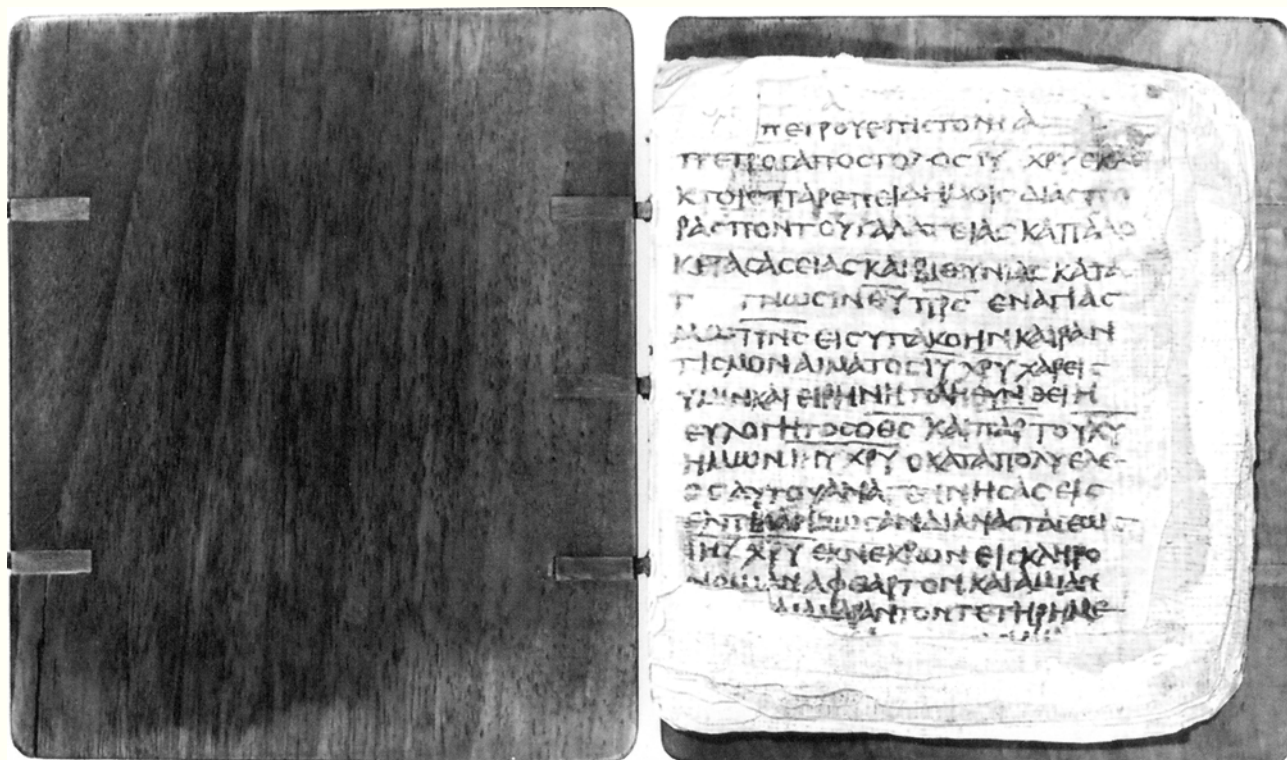 ΠΕΤΡΟΥ ΕΠΙΣΤΟΛΗ Α
ΠΕΤΡΟΣ ΑΠΟΣΤΟΛΟΣ ΙΥ ΧΡΥ ΕΚΛΕ
ΚΤΟΙΣ ΠΑΡΕΠΕΙΔΗΜΟΙΣ ΔΙΑΣΠΟ
ΡΑΣ ΠΟΝΤΟΥ ΓΑΛΑΤΕΙΑΣ ΚΑΠΑΔΟ
ΚΕΙΑΣ ΑΣΕΙΑΣ ΚΑΙ ΒΙΘΥΝΙΑΣ ΚΑΤΑ
ΓΝΩΣΙΝ ΘΥ ΠΡΣ ΕΝ ΑΓΙΑΣ
ΜΩ ΠΝΣ ΕΙΣ ΥΠΑΚΟΗΝ ΚΑΙ ΡΑΝ
ΤΙΣΜΟΝ ΑΙΜΑΤΟΣ ΙΥ ΧΡΥ ΧΑΡΕΙΣ
ΥΜΙΝ ΚΑΙ ΕΙΡΗΝΗ ΠΛΗΘΥΝΘΕΙΗ
ΕΥΛΟΓΗΤΟΣ Ο ΘΣ ΚΑΙ ΠΑΡ ΤΟΥ ΚΥ
ΗΜΩΝ ΙΗΥ ΧΡΥ Ο ΚΑΤΑ ΠΟΛΥ ΕΛΕ
ΟΣ ΑΥΤΟΥ ΑΝΑΓΕΙΝΗΣΑΣ ΕΙΣ
ΔΙ ΑΝΑΣΤΑΣΕΩΣ
ΙΗΥ ΧΡΥ ΕΚ ΝΕΚΡΩΝ ΕΙΣ ΚΛΗΡΟ
ΝΟΜΙΑΝ ΑΦΘΑΡΤΟΝ ΚΑΙ ΑΜΙΑΝ
ΤΕΤΗΡΗΜΕ